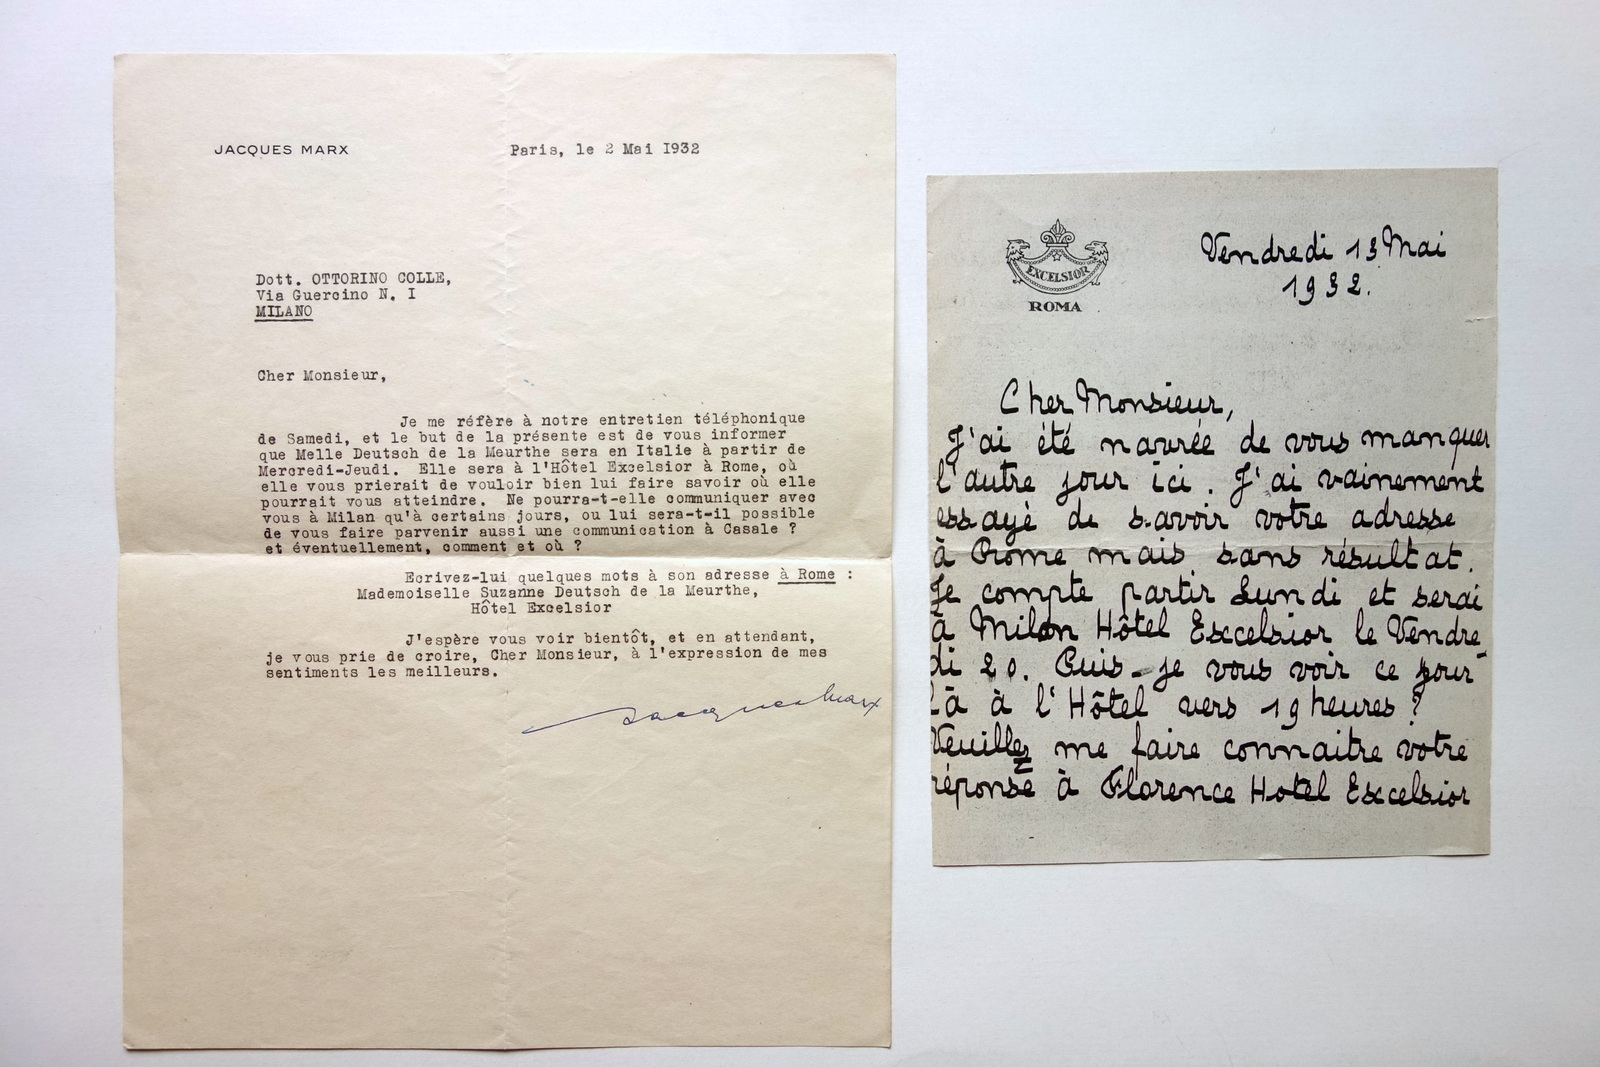 JACQUES MARX
Paris, le 2 Mai 1932
Dott. OTTORINO COLLE,
Via Guercino N. I
MILANO
Cher Monsieur,
Je me réfère à notre entretien téléphonique
de Samedi, et le but de la présente est de vous informer
que Melle Deutsch de la Meurthe sera en Italie à partir de
Mercredi-Jeudi. Elle sera à l'Hôtel Excelsior à Rome, où
elle vous prierait de vouloir bien lui faire savoir où elle
pourrait vous atteindre. Ne pourra-t-elle communiquer avec
vous à Milan qu'à certains jours, ou lui sera-t-il possible
de vous faire parvenir aussi une communication à Casale ?
et éventuellement, comment et où ?
Ecrivez-lui quelques mots à son adresse à Rome :
Mademoiselle Suzanne Deutsch de la Meurthe,
Hôtel Excelsior
J'espère vous voir bientôt, et en attendant,
je vous prie de croire, Cher Monsieur, à l'expression de mes
sentiments les meilleurs.
Jacques Marx
EXCELSIOR
ROMA
Vendredi 13 Mai
1932.
Cher Monsieur,
J'ai été navrée de vous manquer
l'autre jour ici. J'ai vainement
essayé de savoir votre adresse
à Rome mais sans résultat.
Je compte partir Lundi et serai
à Milan Hôtel Excelsior le Vendre-
di 20. Puis-je vous voir ce jour
là à l'Hôtel vers 19 heures ?
Veuillez me faire connaitre votre
réponse à Florence Hotel Excelsior